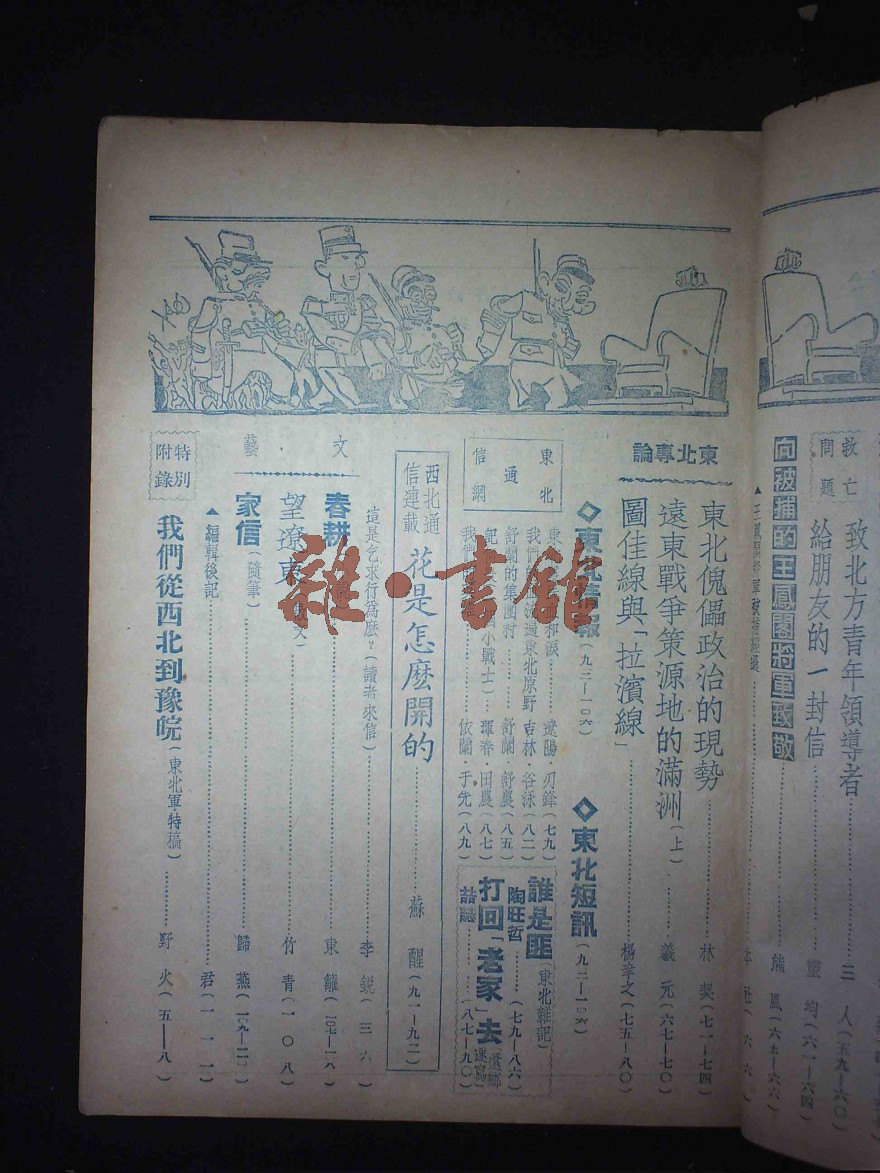 救亡問題
致北方青年領導者………三人（五九—六〇）
給朋友的一封信………靈均（六一—六四）
向被捕的王鳳閣將軍致敬………熊風（六五—六六）
本社（六六）
東北專論
東北傀儡政治的現勢………林契（七一—七四）
遠東戰爭策源地的滿洲（上）………羲元（六七—七〇）
圖佳線與「拉濱線」………楊華之（七五—八〇）
◇東 情報（九二—一〇六）
◇東北短訊（九二—一〇六）
東北通信網
東 和淚………遼陽 刃鋒（七九）
我們 流過東北原野 吉林·谷泳（八二）
舒蘭的集團村………舒蘭 舒農（八五）
記 小戰士………琿春·田農（八七）
我們 ………依蘭 于先（八九）
誰是匪（東北雜記）
陶旺哲………（七九—八六）
打回「老家」去（還鄉速寫）
喆誌………（八七—九〇）
西北通信連載
花是怎麼開的………蘇醒（九一—九二）
文藝
這是乞求行為麼？（讀者來信）………李銳（三六）
春耕………東籬（一〇七—一〇八）
望遼東（散文）………竹青（一〇八）
家信（隨筆）………歸燕（一〇九—一一〇）
▲編輯後記………君（一一一）
特別附錄
我們從西北到豫皖（東北軍·特稿）………野火（五—八）
雜·書館